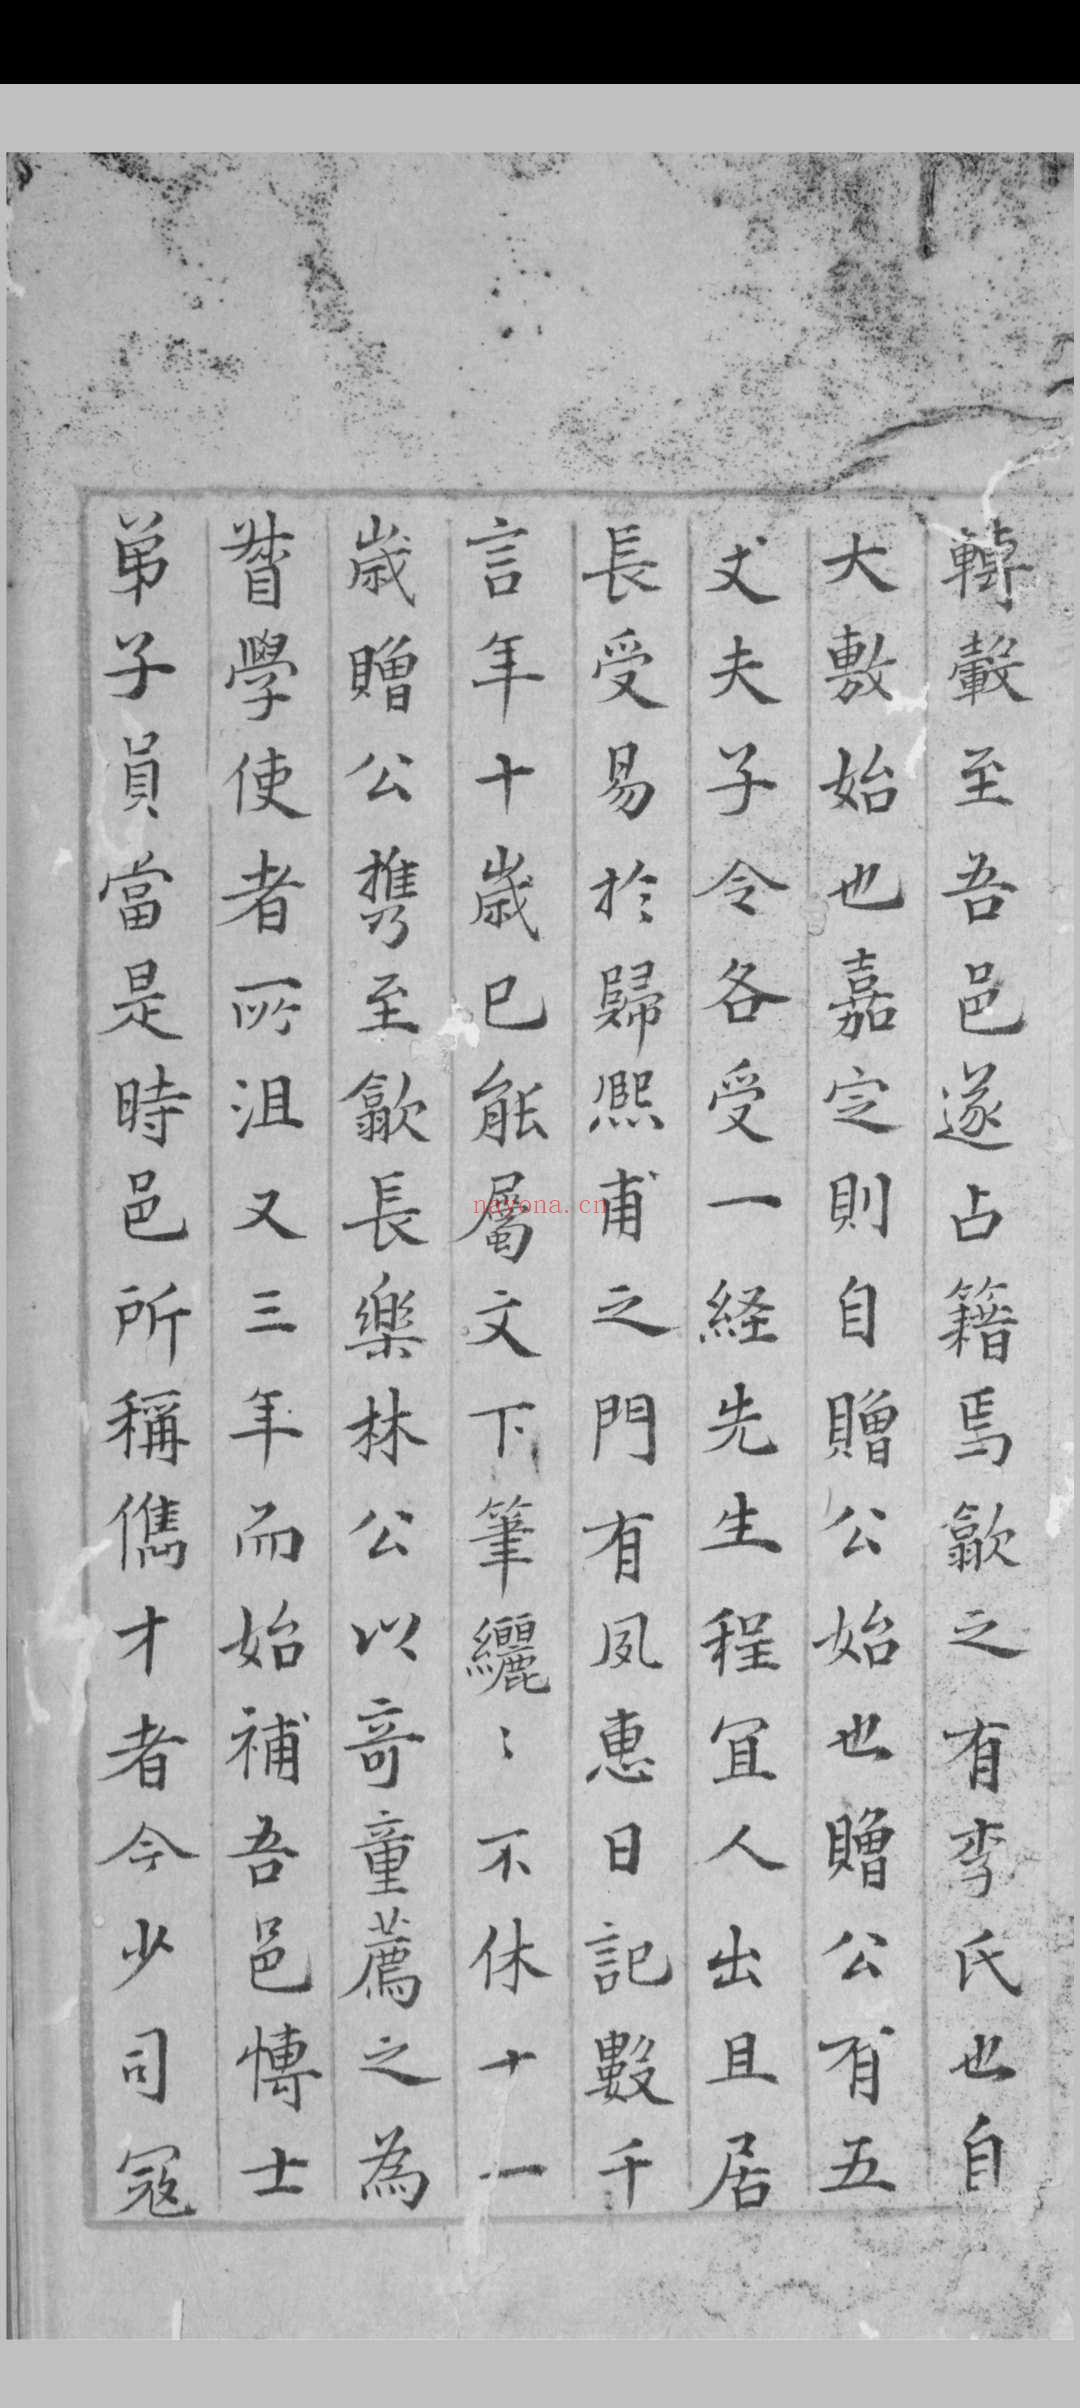 轉轂至吾邑遂占籍焉歙之有李氏也自
大敷始也嘉定則自贈公始也贈公有五
丈夫子令各受一経先生程宜人出且居
長受易於歸熙甫之門有夙惠日記數千
言年十歲已能屬文下筆纚〻不休十一
歲贈公携至歙長長樂林公以奇童薦之為
督學使者所沮又三年而始補吾邑博士
弟子員當是時邑所稱儁才者今少司寇
nayona.cn